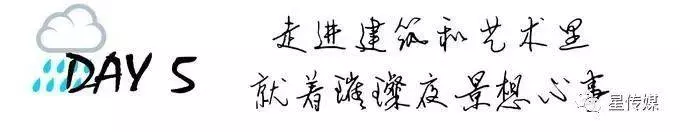 DAY 5
走进建筑和艺术里
就着璀璨夜景想心事
星传媒